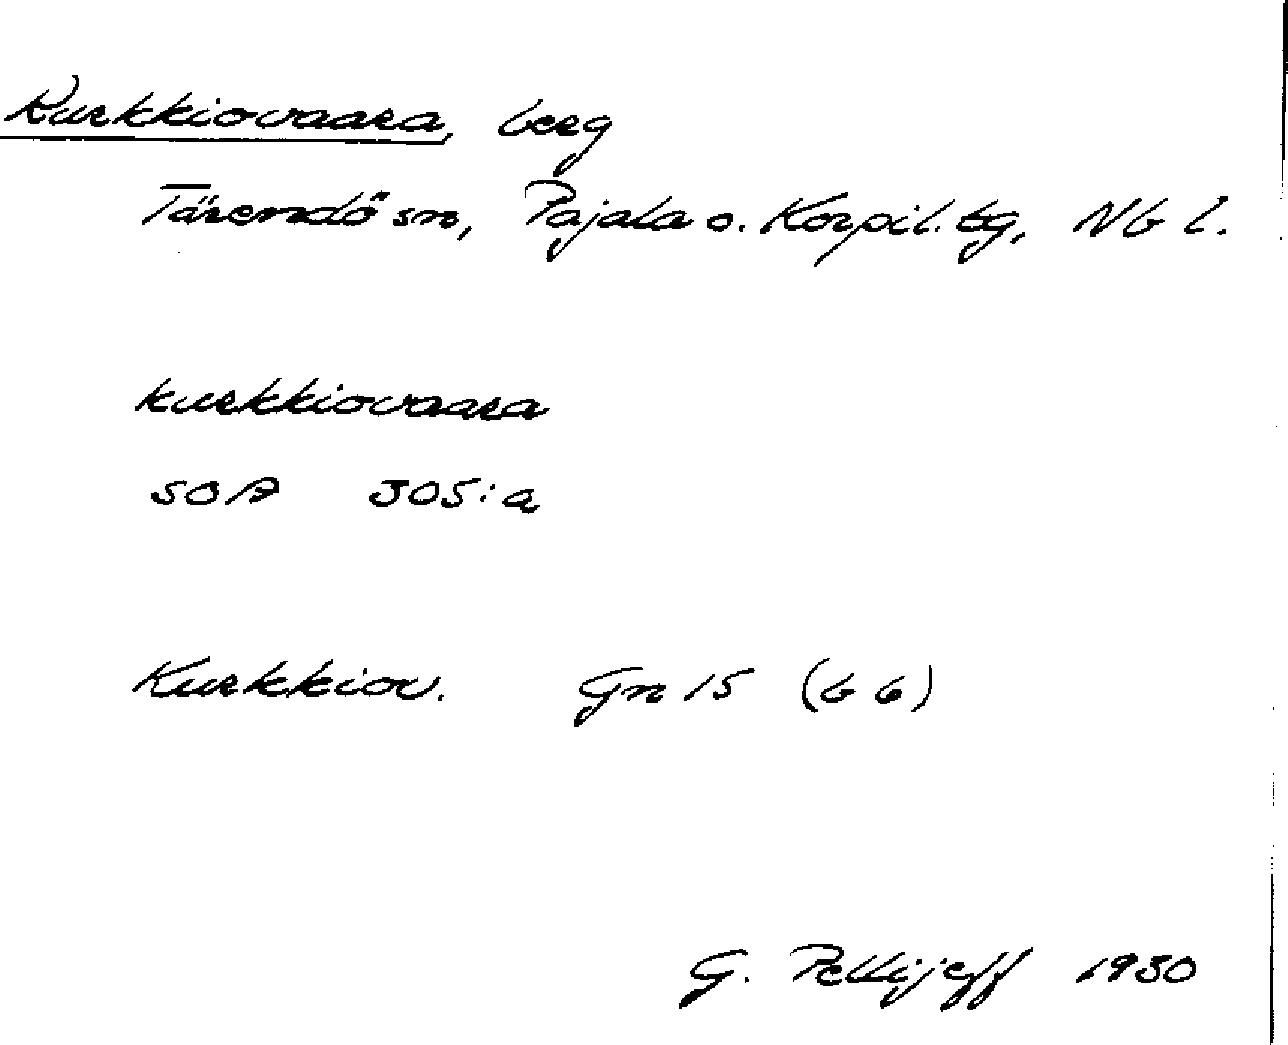 Kurkkiovaara, berg
Tärendö sn, Pajala o. Korpil. tg, Nb l.
kurkkiovaara
SOA 305:a
Kurkkiov. Gn 15 (G 6)
G. Pellijeff 1930